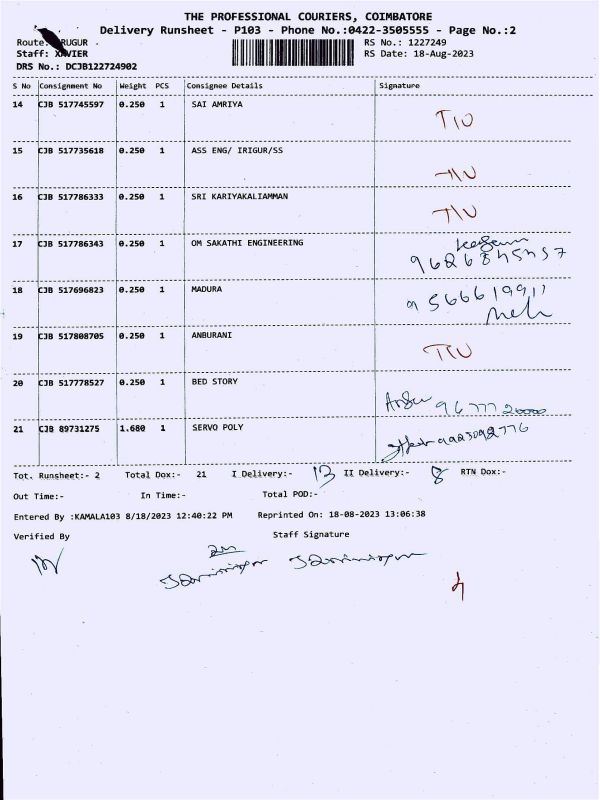 THE PROFESSIONAL COURIERS, COIMBATORE
Delivery Runsheet - P103 - Phone No.:0422-3505555 - Page No.:2
Route: RUGUR RS No.: 1227249
Staff: XAVIER RS Date: 18-Aug-2023
DRS No.: DCJB122724902
S No Consignment No Weight PCS Consignee Details Signature
14 CJB 517745597 0.250 1 SAI AMRIYA
15 CJB 517735618 0.250 1 ASS ENG/ IRIGUR/SS
16 CJB 517786333 0.250 1 SRI KARIYAKALIAMMAN
17 CJB 517786343 0.250 1 OM SAKATHI ENGINEERING
18 CJB 517696823 0.250 1 MADURA
19 CJB 517808705 0.250 1 ANBURANI
20 CJB 517778527 0.250 1 BED STORY
21 CJB 89731275 1.680 1 SERVO POLY
Tot. Runsheet:- 2 Total Dox:- 21 I Delivery:- 13 II Delivery:- 8 RTN Dox:-
Out Time:- In Time:- Total POD:-
Entered By :KAMALA103 8/18/2023 12:40:22 PM Reprinted On: 18-08-2023 13:06:38
Verified By Staff Signature